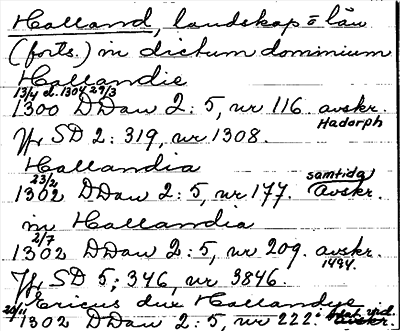 Halland, landskap o län
(forts.) in dictum dominium
Hallandie
13/4 d. 1304 29/3
1300 DDan 2:5, nr 116. avskr.
Hadorph
Jfr SD 2:319, nr 1308.
Hallandia
23/2 samtida
1302 DDan 2:5, nr 177. Avskr.
in Hallandia
2/7
1302 DDan 2:5, nr 209. avskr.
1494.
Jfr SD 5; 346, nr 3846.
Ericus dux Hallandye
20/11 vid.
1302 DDan 2:5, nr 222: avskr.